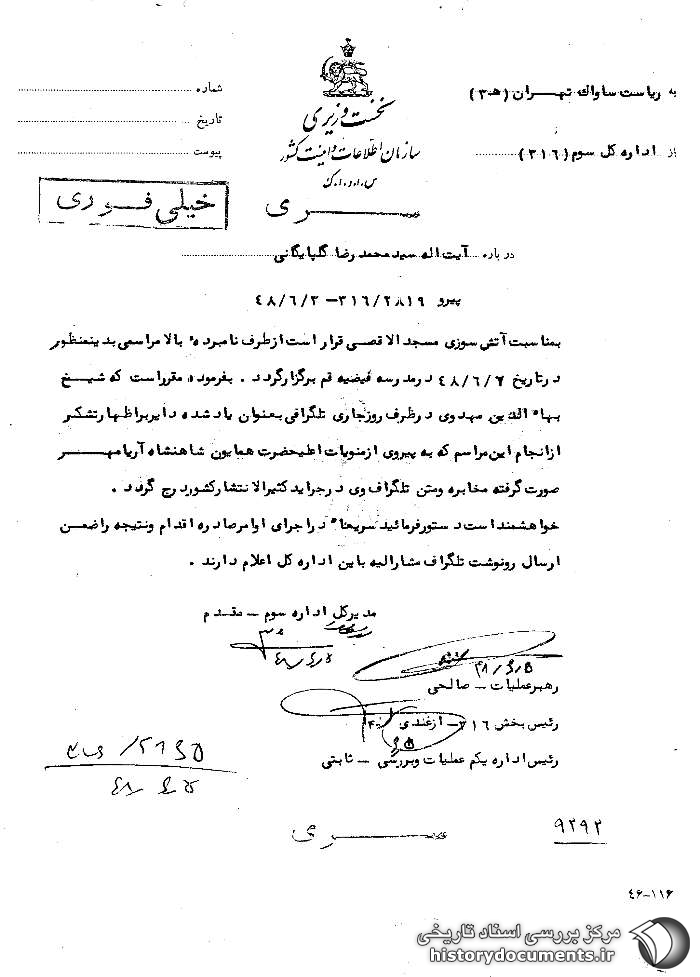 به ریاست ساواك تهــران (هـ ۳)
از اداره کل سوم (۳۱۶)
نخست وزیری
سازمان اطلاعات و امنیت کشور
س.ا.و.ا.ک
شماره
تاریخ
پیوست
خیلی فــوری
ســـری
درباره آیت اله سید محمد رضا گلپایگانی
پیرو ۳۱۶/۲۸۱۹ – ۴۸/۶/۳
بمناسبت آتش سوزی مسجد الاقصی قرار است از طرف نامبرده بالا مراسمی بدینمنظور
در تاریخ ۴۸/۶/۷ در مدرسه فیضیه قم برگزار گردد . بفرموده مقرر است که شیخ
بهاء الدین مهدوی در ظرف روز جاری تلگرافی بعنوان یاد شده دایر بر اظهار تشکر
از انجام این مراسم که به پیروی از منویات اعلیحضرت همایون شاهنشاه آریامهــر
صورت گرفته مخابره و متن تلگراف وی در جراید کثیرالانتشار کشور درج گردد .
خواهشمند است دستور فرمائید سریعاً در اجرای اوامر صادره اقدام و نتیجه را ضمن
ارسال رونوشت تلگراف مشارالیه باین اداره کل اعلام دارند .
مدیر کل اداره سوم – مقدم
۴۸/۶/۵
رهبر عملیات – صالحی
رئیس بخش ۳۱۶ – ازغندی
رئیس اداره یکم عملیات و بررسی – ثابتی
۴۸/۶/۵
ســـری
۹۲۹۲
۴۶-۱۱۶
مرکز بررسی اسناد تاریخی
historydocuments.ir